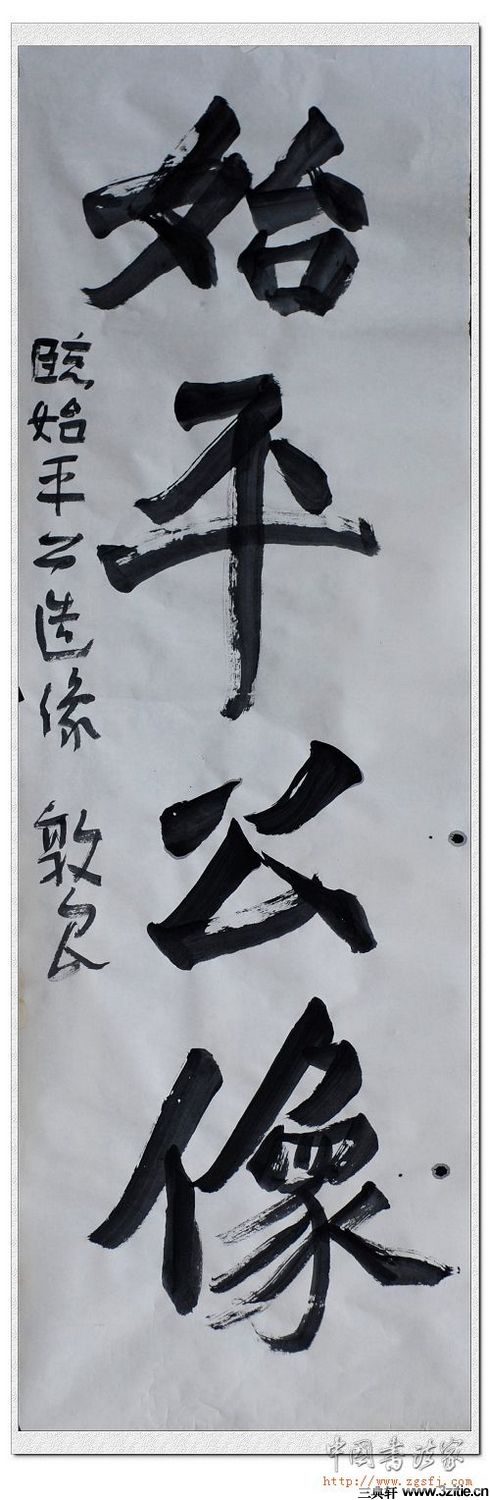 始平公像
临始平公造像 敦良
中国书法家
http://www.zgsfj.com
三典轩 www.3ztie.cn